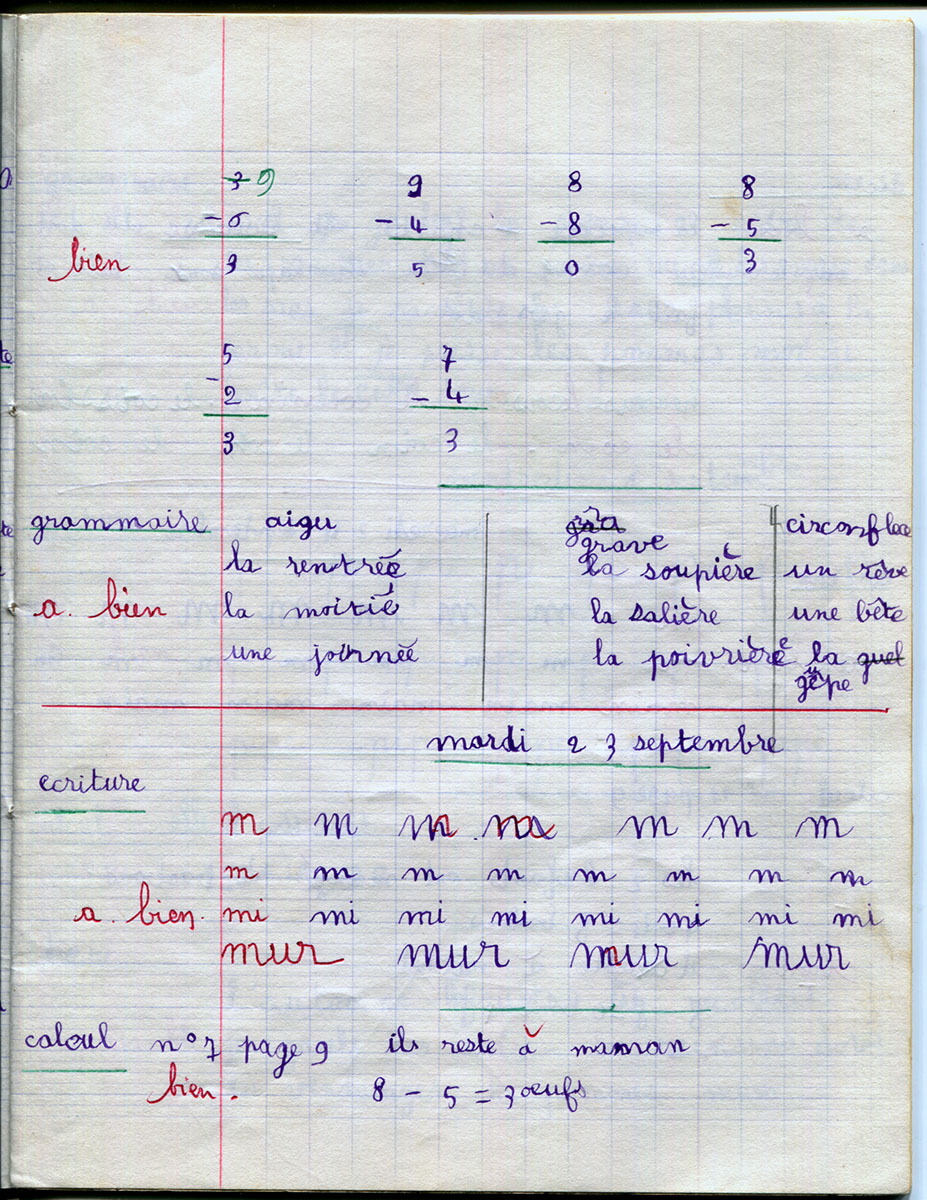 3 9 9 8 8
- 0 - 4 - 8 - 5
bien 9 5 0 3
5 7
- 2 - 4
3 3
grammaire aigu gra grave circonflexe
la rentrée la soupière un rêve
a. bien la moitié la salière une bête
une journée la poivrière la guel
guêpe
mardi 23 septembre
ecriture
m m m m m m m
m m m m m m m m
a. bien. mi mi mi mi mi mi mi mi
mur mur mur mur
calcul n° 7 page 9 ils reste à maman
bien. 8 - 5 = 3 œufs